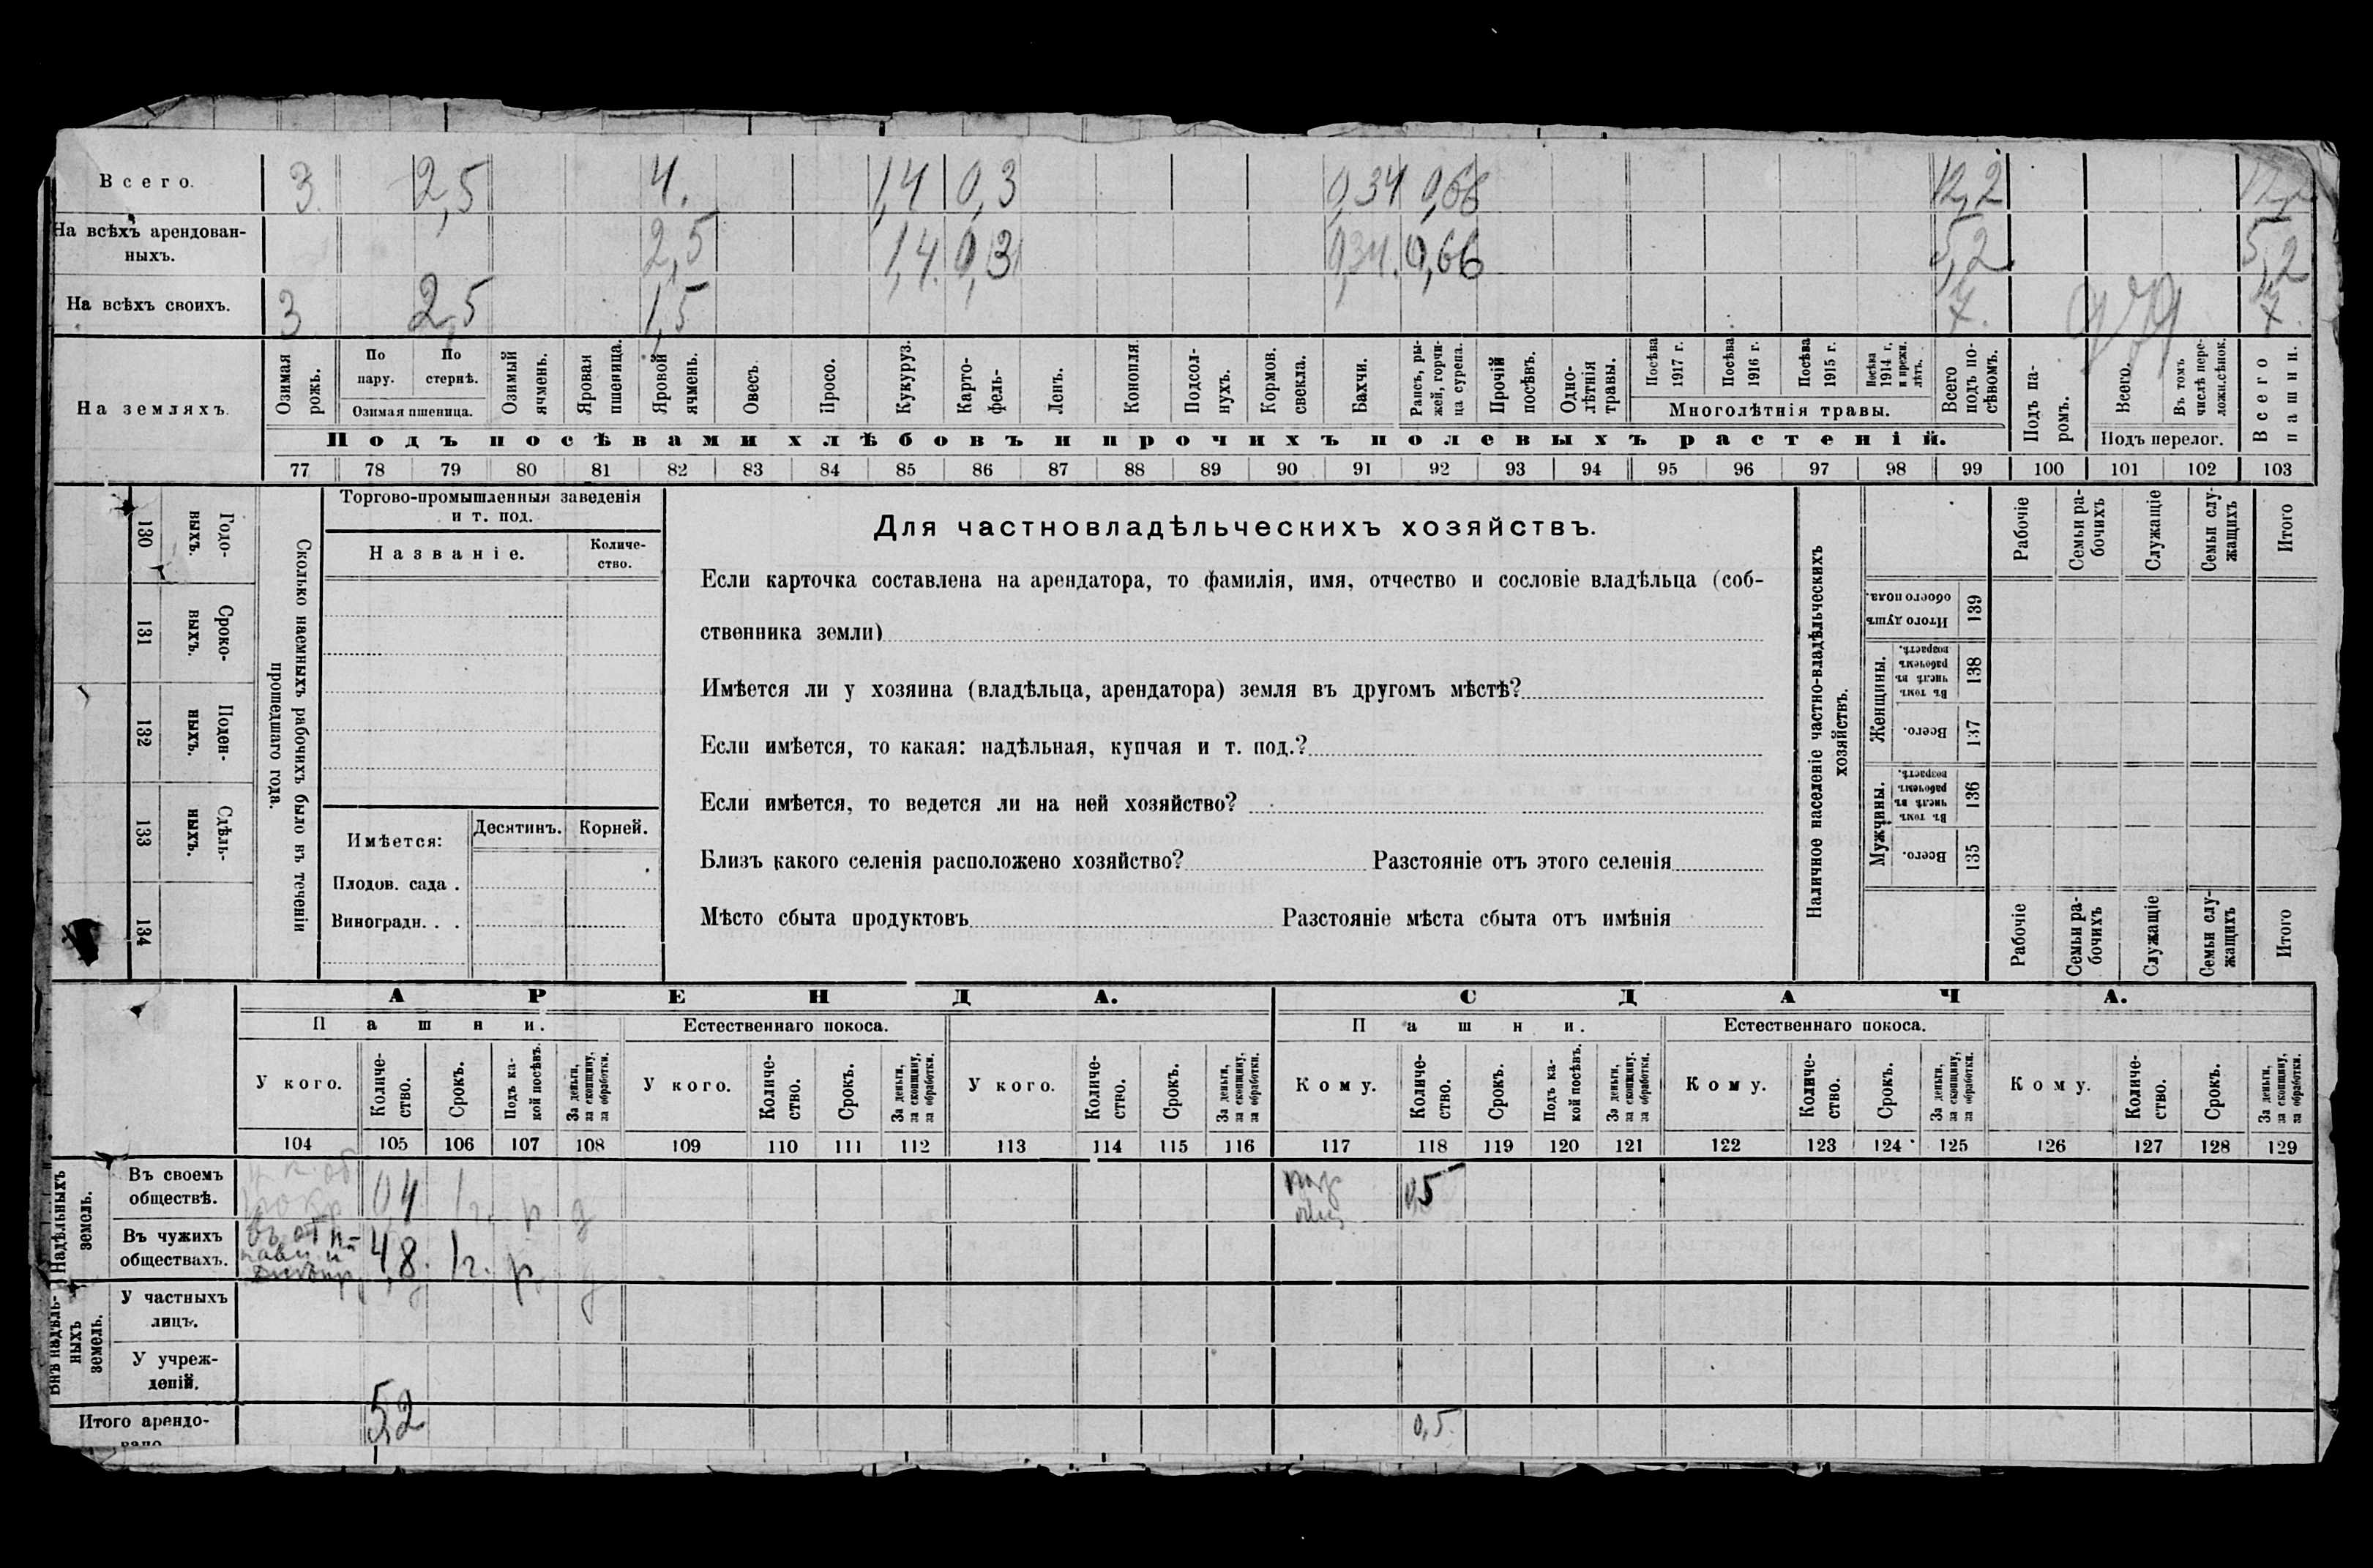 Всего. 3. 2,5 4. 1,4 0,3 0,34 0,66 12,2 12,2
На всѣхъ арендован-
ныхъ. 2,5 1,4. 0,3 0,34. 0,66 5,2 5,2
На всѣхъ своихъ. 3 2,5 1,5 7. 7.
На земляхъ.
Озимая рожь.
По пару.
По стернѣ.
Озимая пшеница.
Озимый ячмень.
Яровая пшеница.
Яровой ячмень.
Овесъ.
Просо.
Кукуруз.
Карто-
фель-
Ленъ.
Конопля.
Подсол-
нухъ.
Кормов.
свекла.
Бахчи.
Рапсъ, ры-
жей, горчи-
ца сурепа.
Прочій
посѣвъ.
Одно-
лѣтнія
травы.
Посѣва
1917 г.
Посѣва
1916 г.
Посѣва
1915 г.
Посѣва
1914 г.
и прежн.
лѣтъ.
Многолѣтнія травы.
Всего
подъ по-
сѣвомъ.
Подъ па-
ромъ.
Всего.
Въ томъ
числѣ пере-
ложн.сѣнок.
Подъ перелог.
Всего
пашни.
Подъ посѣвами хлѣбовъ и прочихъ полевыхъ растеній.
77 78 79 80 81 82 83 84 85 86 87 88 89 90 91 92 93 94 95 96 97 98 99 100 101 102 103
130 Годо-
ныхъ.
131 Сроко-
ныхъ.
132 Поден-
ныхъ.
133 Сдѣль-
ныхъ.
134
Сколько наемныхъ рабочихъ было въ теченіи
прошедшаго года.
Торгово-промышленныя заведенія
и т. под.
Названіе.
Количе-
ство.
Имѣется:
Десятинъ. Корней.
Плодов. сада .
Виноградн. . .
Для частновладѣльческихъ хозяйствъ.
Если карточка составлена на арендатора, то фамилія, имя, отчество и сословіе владѣльца (соб-
ственника земли)
Имѣется ли у хозяина (владѣльца, арендатора) земля въ другомъ мѣстѣ?
Если имѣется, то какая: надѣльная, купчая и т. под.?
Если имѣется, то ведется ли на ней хозяйство?
Близъ какого селенія расположено хозяйство? Разстояніе отъ этого селенія
Мѣсто сбыта продуктовъ Разстояніе мѣста сбыта отъ имѣнія
Наличное населеніе частно-владѣльческихъ
хозяйствъ.
Рабочіе
Семьи ра-
бочихъ
Служащіе
Семьи слу-
жащихъ
Итого
Итого душъ
обоего пола.
139
Женщины.
Въ томъ
числѣ въ
рабочемъ
возрастѣ.
138
Всего.
137
Мужчины.
Въ томъ
числѣ въ
рабочемъ
возрастѣ.
136
Всего.
135
Рабочіе
Семьи ра-
бочихъ
Служащіе
Семьи слу-
жащихъ
Итого
АРЕНДА. СДАЧА.
Пашни. Естественнаго покоса. Пашни. Естественнаго покоса.
У кого.
Количе-
ство.
Срокъ.
Подъ ка-
кой посѣвъ.
За деньги,
за скопщину,
за обработки.
У кого.
Количе-
ство.
Срокъ.
За деньги,
за скопщину,
за обработки.
У кого.
Количе-
ство.
Срокъ.
За деньги,
за скопщину,
за обработки.
Кому.
Количе-
ство.
Срокъ.
Подъ ка-
кой посѣвъ.
За деньги,
за скопщину,
за обработки.
Кому.
Количе-
ство.
Срокъ.
За деньги,
за скопщину,
за обработки.
Кому.
Количе-
ство.
Срокъ.
За деньги,
за скопщину,
за обработки.
104 105 106 107 108 109 110 111 112 113 114 115 116 117 118 119 120 121 122 123 124 125 126 127 128 129
Надѣльныхъ
земель.
Въ своемъ
обществѣ. 04 1г. р д 05
Въ чужихъ
обществахъ. 4,8. 1г. р. д
Внѣ надѣль-
ныхъ
земель.
У частныхъ
лицъ.
У учреж-
деній.
Итого арендо-
вано 5,2 0,5.